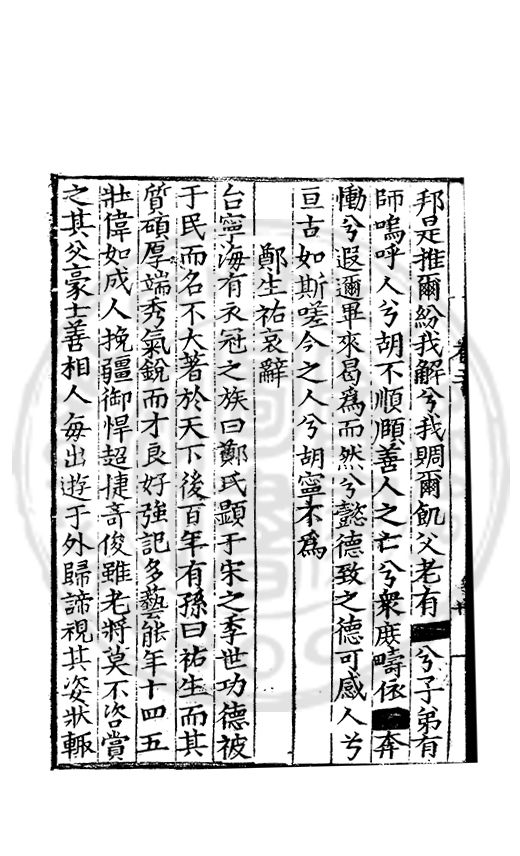 邦是推爾紛我解兮我賙爾飢父老有兮子弟有
師嗚呼人兮胡不順願善人之亡兮衆庶疇依奔
慟兮遐邇畢來曷爲而然兮懿德致之德可感人兮
亘古如斯嗟今之人兮胡寧不爲
鄭生祐哀辭
台寧海有衣冠之族曰鄭氏顯于宋之季世功德被
于民而名不大著於天下後百年有孫曰祐生而其
質碩厚端秀氣銳而才良好強記多藝能年十四五
壯偉如成人挽彊御悍超捷竒俊雖老將莫不咨賞
之其父豪士善相人每出遊于外歸諦視其姿狀輙